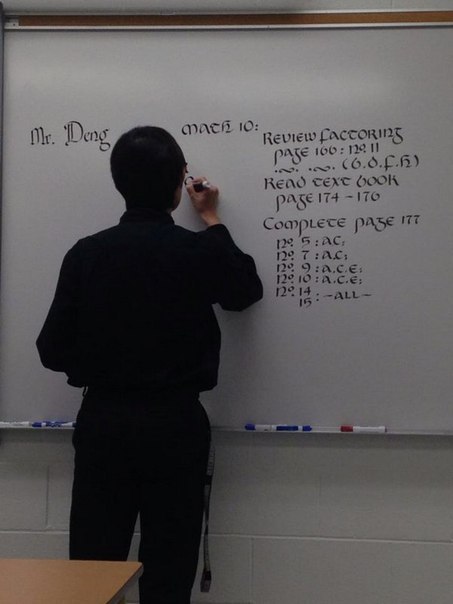 Mr. Deng
Math 10:
Review Factoring
page 166: no. 11
(b.d.f.h)
Read text book
page 174-176
Complete page 177
no. 5: a.c;
no. 7: a.c;
no. 9: a.c.e;
no. 10: a.c.e;
no. 14
15: -all-